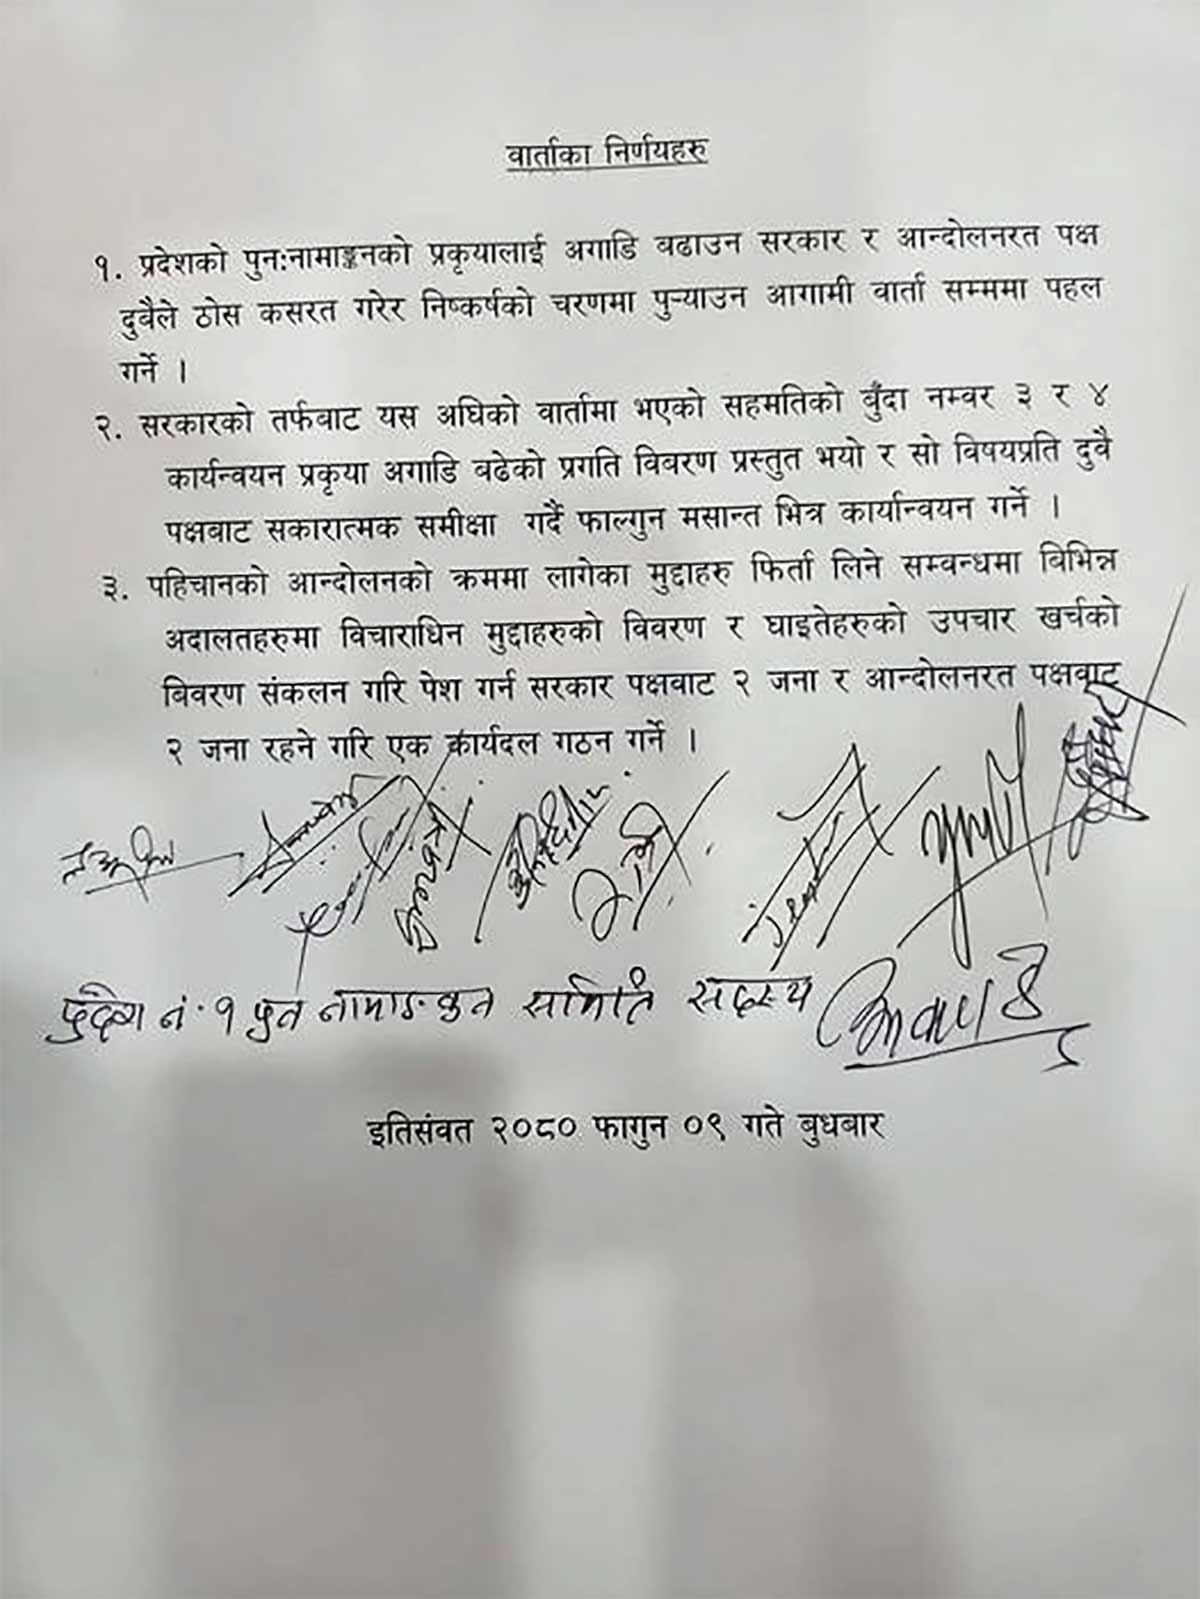 वार्ताका निर्णयहरु
१. प्रदेशको पुन:नामाङ्कनको प्रकृयालाई अगाडि बढाउन सरकार र आन्दोलनरत पक्ष
दुवैले ठोस कसरत गरेर निष्कर्षको चरणमा पुऱ्याउन आगामी वार्ता सम्ममा पहल
गर्ने ।
२. सरकारको तर्फबाट यस अघिको वार्तामा भएको सहमतिको बुँदा नम्वर ३ र ४
कार्यन्वयन प्रकृया अगाडि बढेको प्रगति विबरण प्रस्तुत भयो र सो विषयप्रति दुवै
पक्षबाट सकारात्मक समीक्षा गर्दै फाल्गुन मसान्त भित्र कार्यान्वयन गर्ने ।
३. पहिचानको आन्दोलनको क्रममा लागेका मुद्दाहरु फिर्ता लिने सम्वन्धमा बिभिन्न
अदालतहरुमा विचाराधिन मुद्दाहरुको विवरण र घाइतेहरुको उपचार खर्चको
बिवरण संकलन गरि पेश गर्न सरकार पक्षवाट २ जना र आन्दोलनरत पक्षवाट
२ जना रहने गरि एक कार्यदल गठन गर्ने ।
प्रदेश नं. १ पुन नामाङकन समिति सदस्य
इतिसंवत २०८० फागुन ०९ गते बुधबार